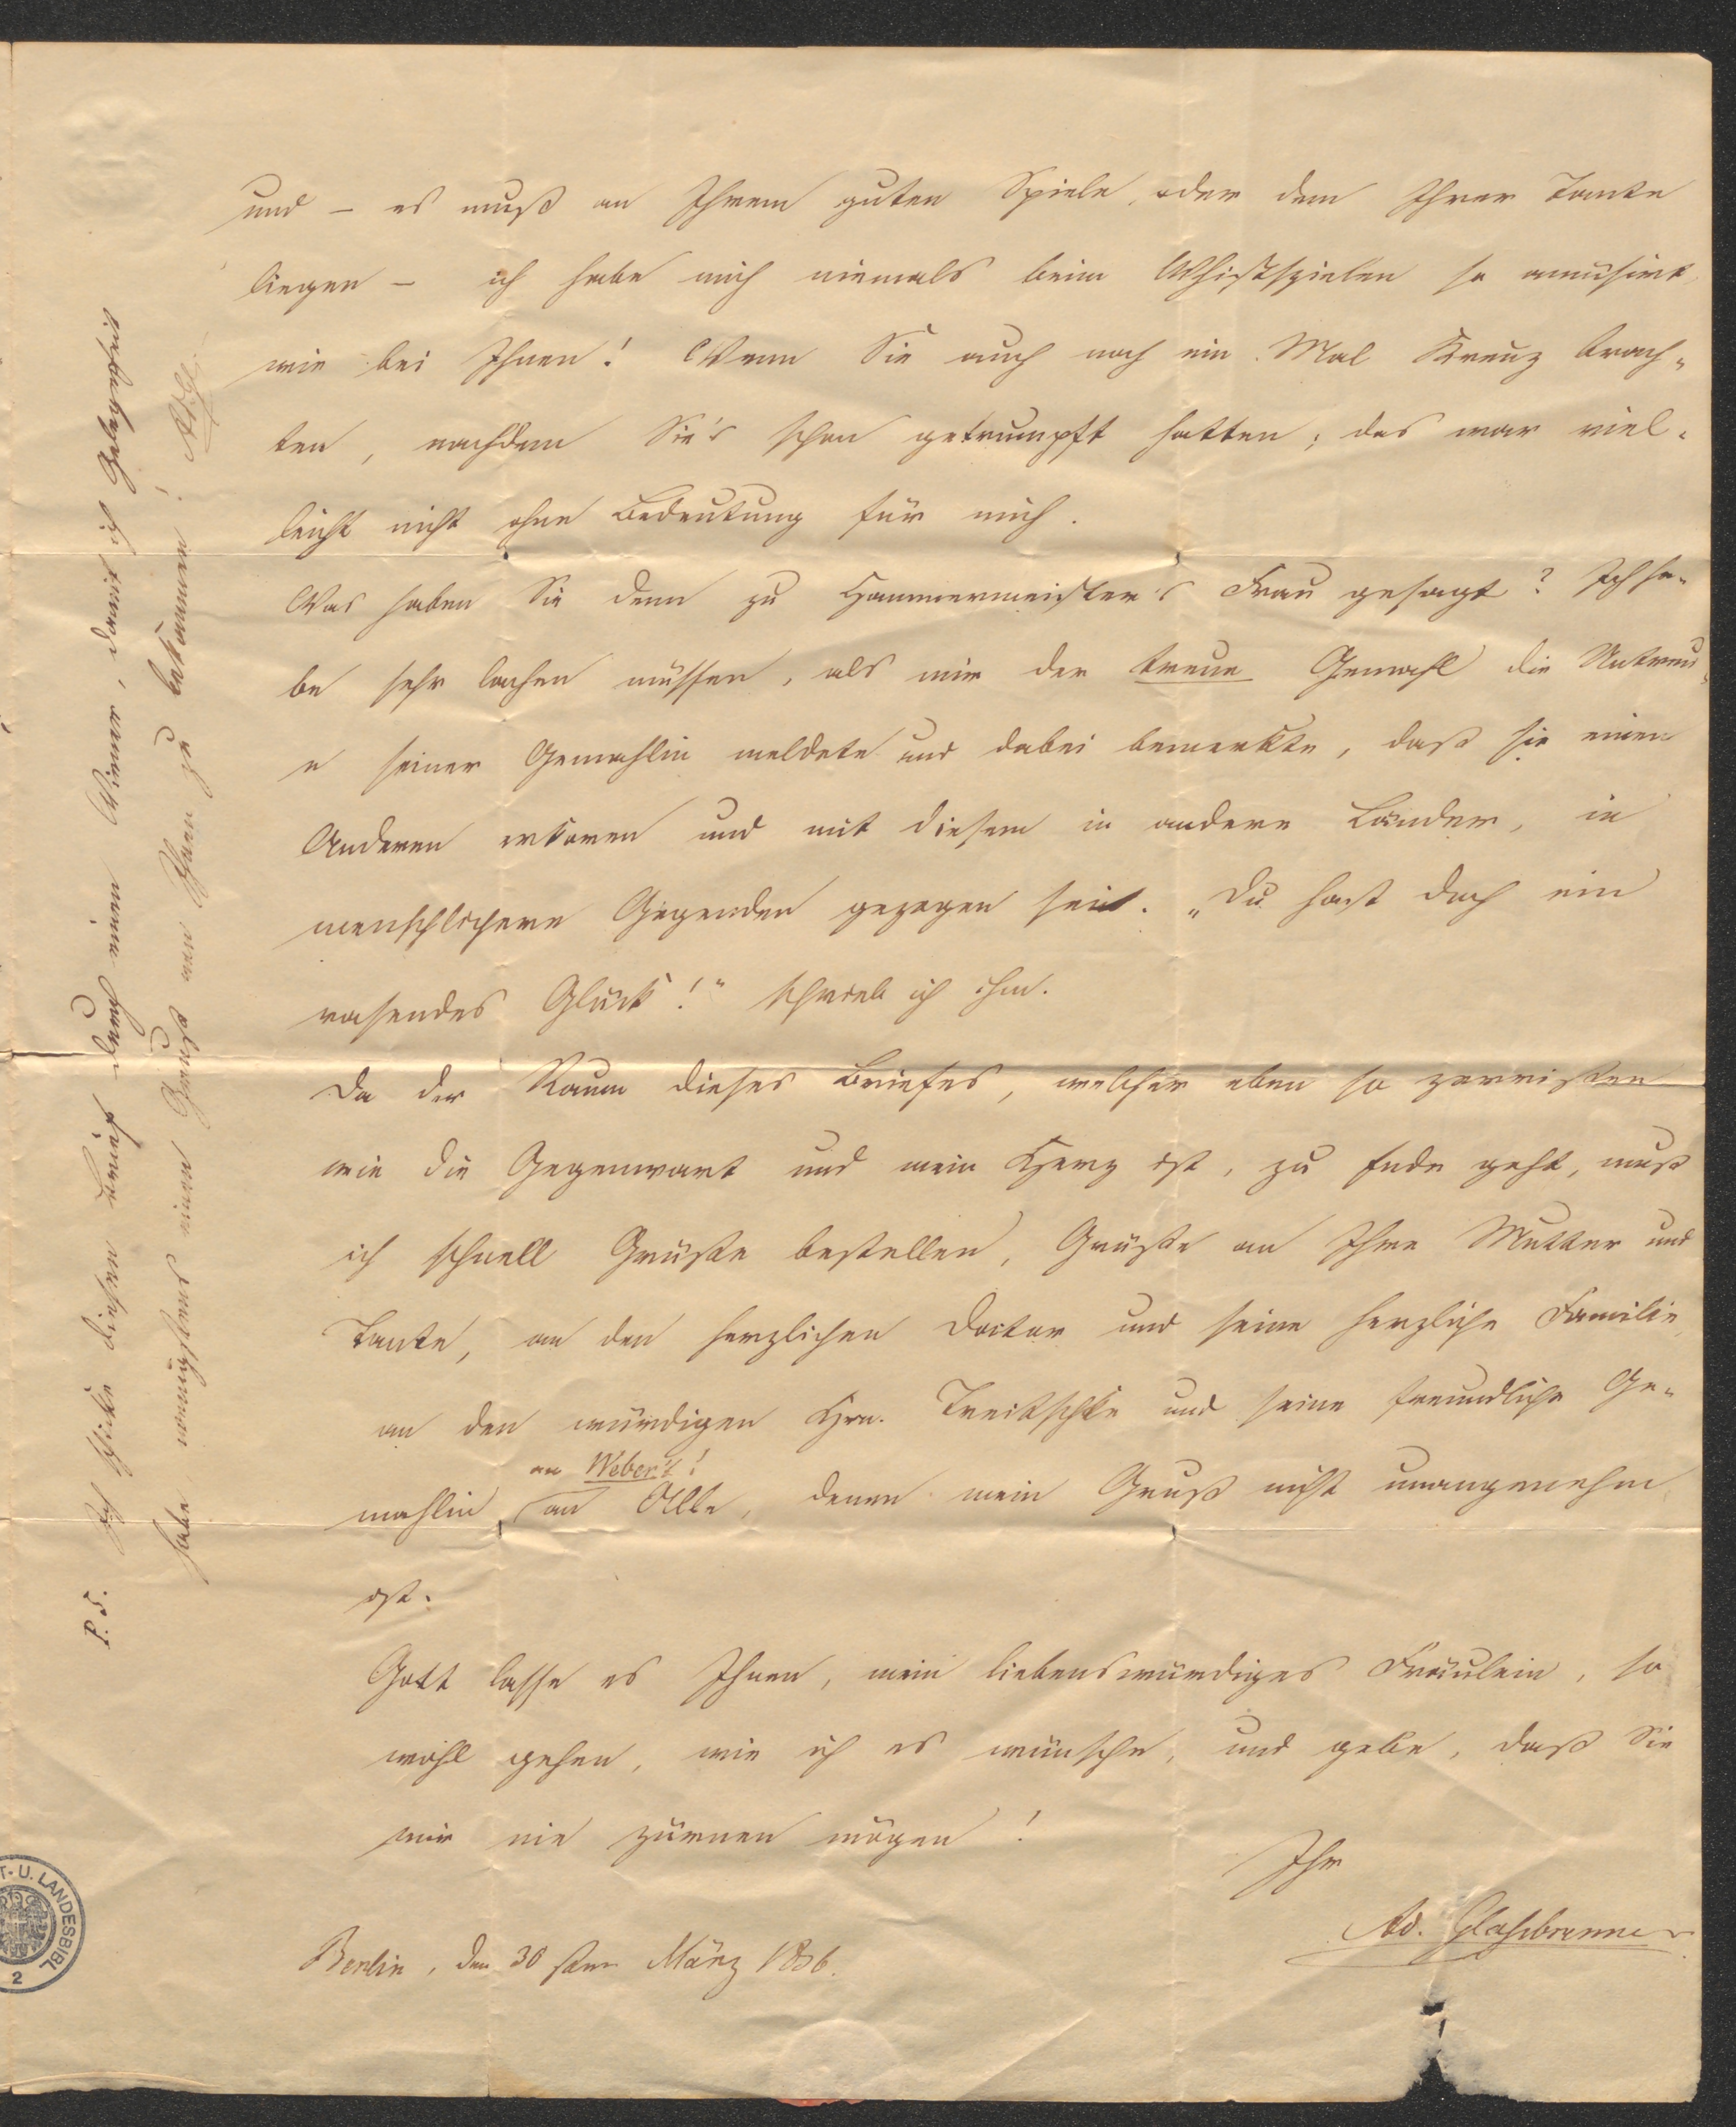 und – es muß an Ihrem guten Spiele, oder dem Ihrer Tante
liegen – ich habe mich niemals beim Whistspielen so amüsirt,
wie bei Ihnen! Wenn Sie auch noch ein Mal Kreuz brach-
ten, nachdem Sie's schon getrumpft hatten; das war viel-
leicht nicht ohne Bedeutung für mich.
Was haben Sie denn zu Hammermeister's Frau gesagt? Ich ha-
be sehr lachen müssen, als mir der treue Gemahl die Untreu-
e seiner Gemahlin meldete und dabei bemerkte, daß sie einen
Anderen erkoren und mit diesem in andere Länder, in
menschlichere Gegenden gezogen sei. „Du hast doch ein
rasendes Glück!" schrieb ich ihm.
Da der Raum dieses Briefes, welcher eben so zerrissen
wie die Gegenwart und mein Herz ist, zu Ende geht, muß
ich schnell Grüße bestellen, Grüße an Ihre Mutter und
Tante, an den herzlichen Doctor und seine herzliche Familie,
an den würdigen Hrn. Treitschke und seine freundliche Ge-
an Weber's!
mahlin, an Alle, denen mein Gruß nicht unangenehm
ist.
Gott lasse es Ihnen, mein liebenswürdiges Fräulein, so
wohl gehen, wie ich es wünsche, und gebe, daß Sie
mir nie zürnen mögen!
Ihr
Ad. Glassbrenner
Berlin, den 30 sten März 1836.
P. S. Ich schicke diesen Brief durch einen Wiener, damit ich Gelegenheit
habe wenigstens einen Gruß von Ihnen zu bekommen! Ad. Gl.
T.- U. LANDESBIBL
2